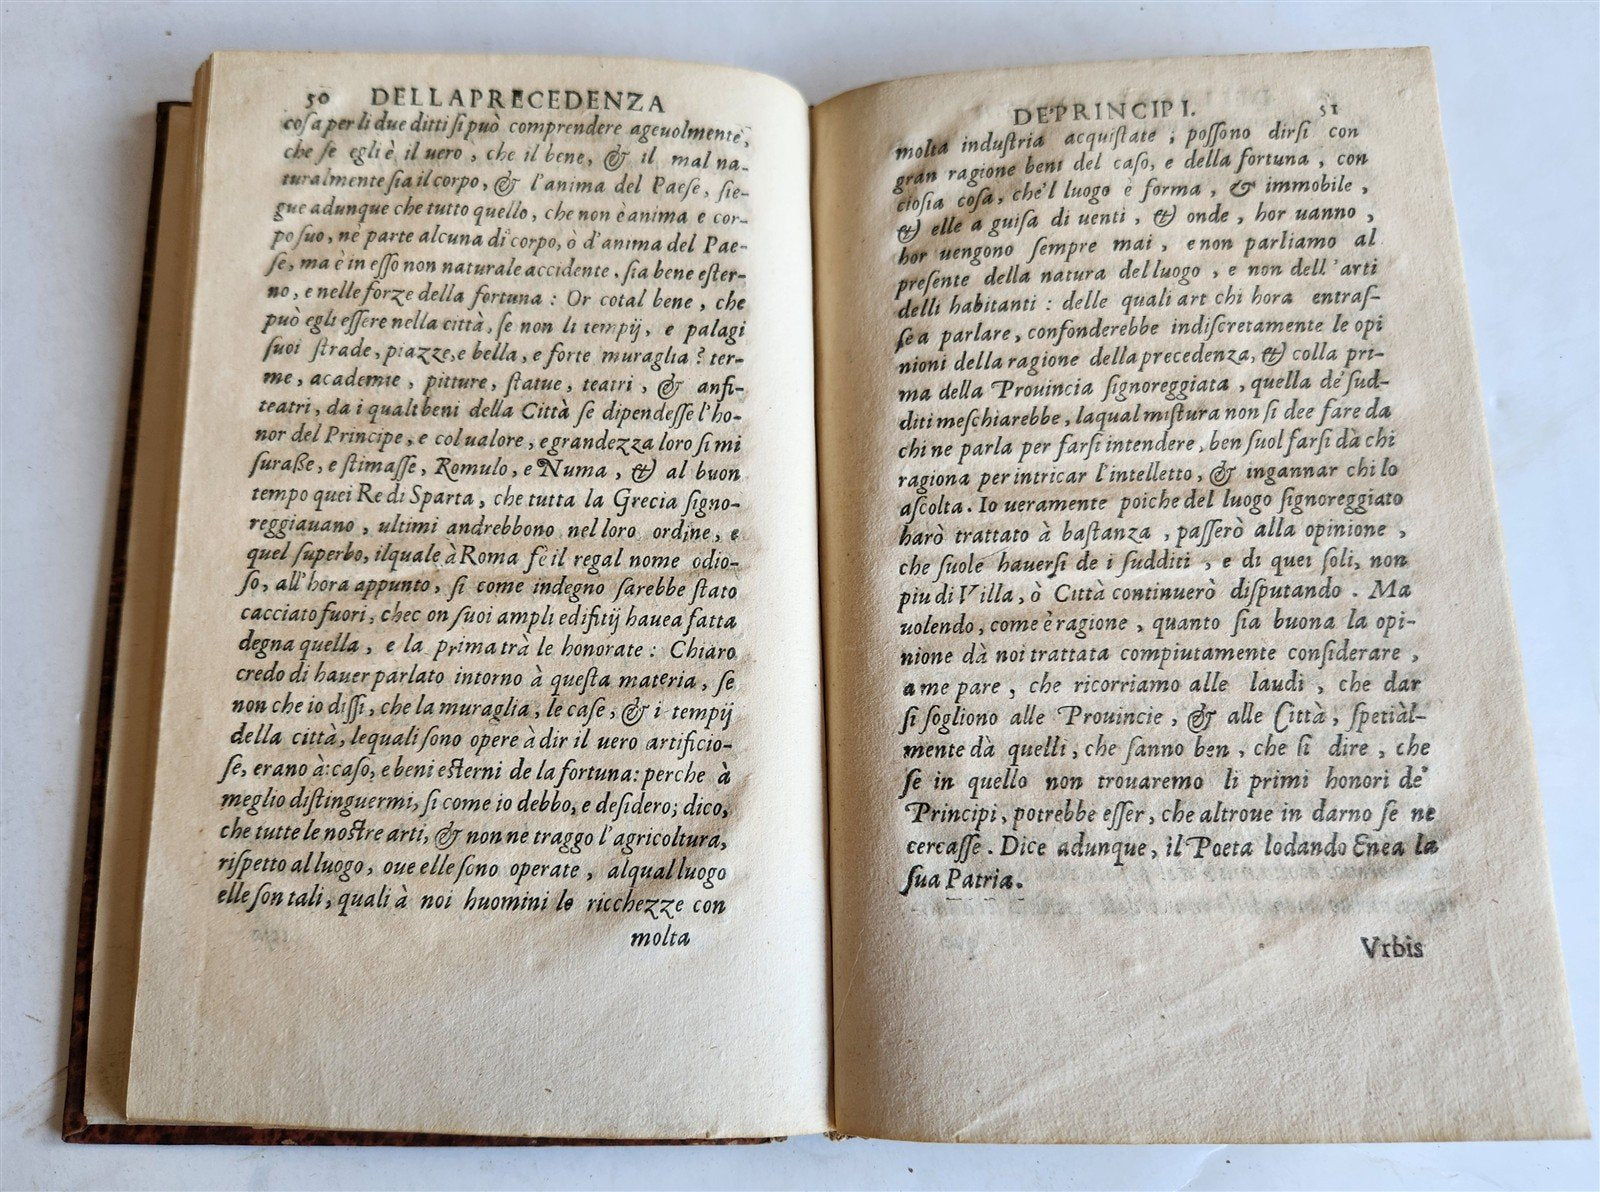 50 DELLA PRECEDENZA
cosa per li due ditti si può comprendere ageuolmente,
che se egli è il uero, che il bene, & il mal na-
turalmente sia il corpo, & l'anima del Paese, sie-
gue adunque che tutto quello, che non è anima e cor-
po suo, nè parte alcuna di corpo, ò d'anima del Pae-
se, ma è in esso non naturale accidente, sia bene ester-
no, e nelle forze della fortuna: Or cotal bene, che
può egli essere nella città, se non li tempij, e palagi
suoi strade, piazze, e bella, e forte muraglia? ter-
me, academie, pitture, statue, teatri, & anfi-
teatri, da i quali beni della Città se dipendesse l'ho-
nor del Principe, e col ualore, e grandezza loro si mi
suraße, e stimasse, Romulo, e Numa, & al buon
tempo quei Re di Sparta, che tutta la Grecia signo-
reggiauano, ultimi andrebbono nel loro ordine, e
quel superbo, ilquale à Roma fè il regal nome odio-
so, all'hora appunto, si come indegno sarebbe stato
cacciato fuori, chec on suoi ampli edifitij hauea fatta
degna quella, e la prima trà le honorate: Chiaro
credo di hauer parlato intorno à questa materia, se
non che io dissi, che la muraglia, le case, & i tempij
della città, lequali sono opere à dir il uero artificio-
se, erano à caso, e beni esterni de la fortuna: perche à
meglio distinguermi, si come io debbo, e desidero; dico,
che tutte le nostre arti, & non nè traggo l'agricoltura,
rispetto al luogo, oue elle sono operate, alqual luogo
elle son tali, quali à noi huomini le ricchezze con
molta
DE' PRINCIPI. 51
molta industria acquistate; possono dirsi con
gran ragione beni del caso, e della fortuna, con
ciosia cosa, che'l luogo è forma, & immobile,
& elle a guisa di uenti, & onde, hor uanno,
hor uengono sempre mai, e non parliamo al
presente della natura del luogo, e non dell'arti
delli habitanti: delle quali art chi hora entras-
se a parlare, confonderebbe indiscretamente le opi
nioni della ragione della precedenza, & colla pri-
ma della Prouincia signoreggiata, quella de' sud-
diti meschiarebbe, laqual mistura non si dee fare da
chi ne parla per farsi intendere, ben suol farsi dà chi
ragiona per intricar l'intelletto, & ingannar chi lo
ascolta. Io ueramente poiche del luogo signoreggiato
harò trattato à bastanza, passerò alla opinione,
che suole hauersi de i sudditi, e di quei soli, non
piu di Villa, ò Città continuerò disputando. Ma
uolendo, come è ragione, quanto sia buona la opi-
nione dà noi trattata compiutamente considerare,
a me pare, che ricorriamo alle laudi, che dar
si sogliono alle Prouincie, & alle Città, spetial-
mente dà quelli, che sanno ben, che si dire, che
se in quello non trouaremo li primi honori de'
Principi, potrebbe esser, che altroue in darno se ne
cercasse. Dice adunque, il Poeta lodando Enea la
sua Patria.
Vrbis